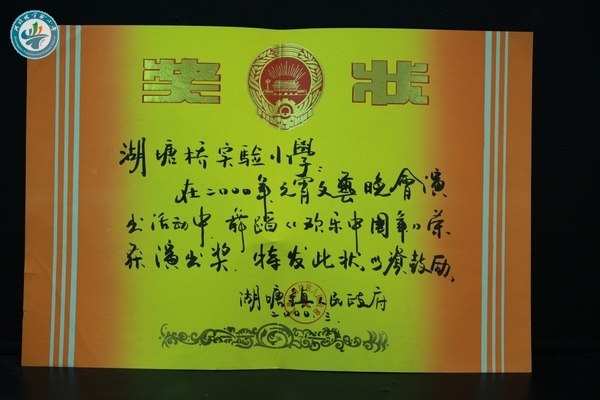 奖状
湖塘桥实验小學:
在二000年元宵文藝晚會演
出活动中,舞蹈《欢乐中國年》荣
获演出奖。特发此状,以资鼓励。
湖塘镇人民政府
二000.二.